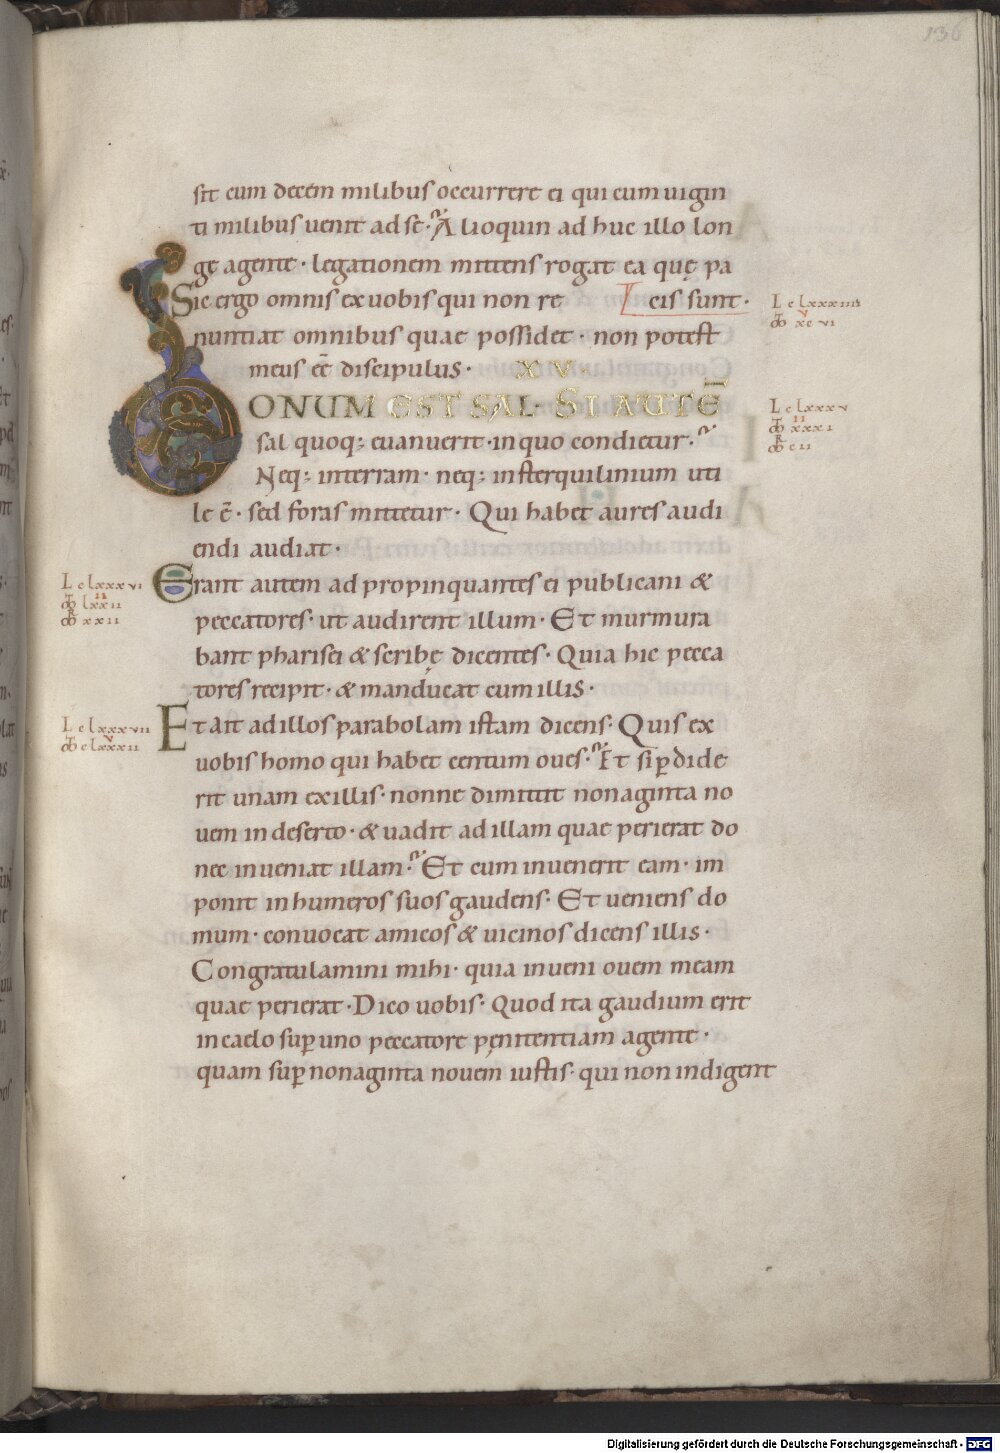 136
sit cum decem milibus occurrere ei qui cum uigin
ti milibus uenit ad se· Alioquin ad huc illo lon
ge agente· legationem mittens rogat ea quę pa
Sic ergo omnis ex uobis qui non re cis sunt·
L clxxxiiii
V
M xcvi
nuntiat omnibus quae possidet· non potest
meus eē discipulus· XV·
BONUM EST SAL· SI AUTĒ
L clxxxv
II
M xxxi
R
M cii
sal quoq; euanuerit· in quo condietur·
Neq; in terram· neq; in sterquilinium uti
le ē· sed foras mittetur· Qui habet aures audi
endi audiat·
L clxxxvi
II
M lxxii
R
M xxii
Erant autem ad propinquantes ei publicani &
peccatores· ut audirent illum· Et murmura
bant pharisei & scribę dicentes· Quia hic pecca
tores recipit· & manducat cum illis·
L clxxxvii
V
M clxxxii
Et ait ad illos parabolam istam dicens· Quis ex
uobis homo qui habet centum oues· Et si ꝑdide
rit unam ex illis· nonne dimittit nonaginta no
uem in deserto· & uadit ad illam quae perierat do
nec inueniat illam· Et cum inuenerit eam· im
ponit in humeros suos gaudens· Et ueniens do
mum· conuocat amicos & uicinos dicens illis·
Congratulamini mihi· quia inueni ouem meam
quae perierat· Dico uobis· Quod ita gaudium erit
in caelo suꝑ uno peccatore pęnitentiam agente·
quam suꝑ nonaginta nouem iustis· qui non indigent
Digitalisierung gefördert durch die Deutsche Forschungsgemeinschaft - DFG